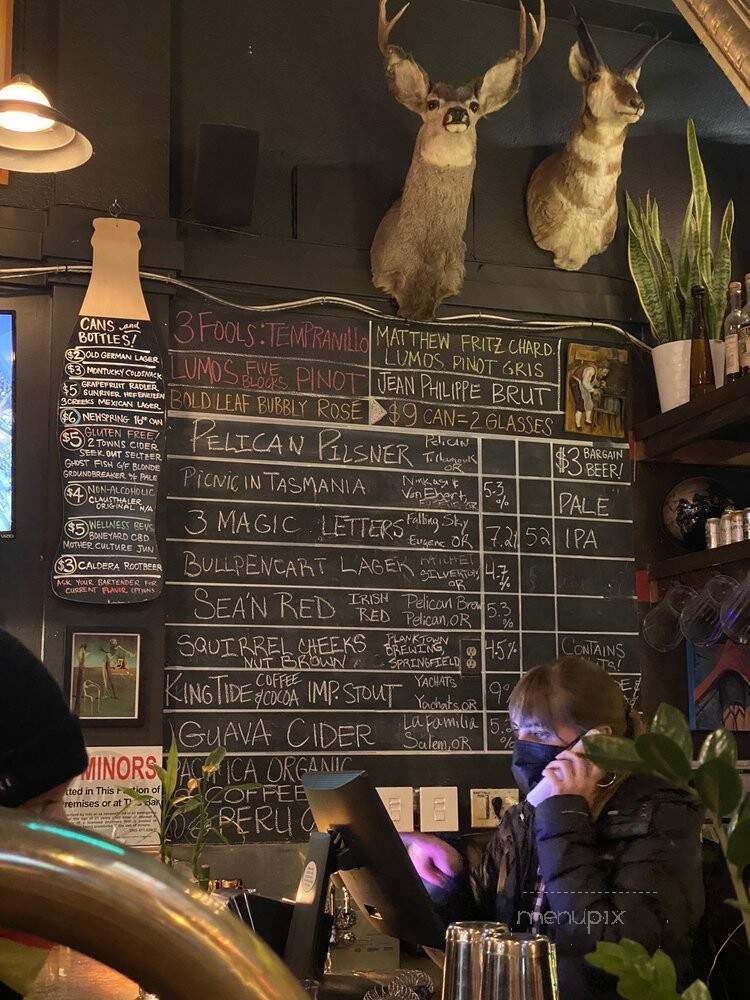 CANS and
BOTTLES!
$2 OLD GERMAN LAGER
$3 MONTUCKY COLD SNACK
$5 GRAPEFRUIT RADLER
SUNRIVER HEFEWEIZEN
3 CREEKS MEXICAN LAGER
$6 NEWSPRING 16oz CAN
$5 GLUTEN FREE/
2 TOWNS CIDER
SEEK OUT SELTZER
GHOST FISH G/F BLONDE
GROUNDBREAKER G/F PALE
$4 NON-ALCOHOLIC
CLAUSTHALER
ORIGINAL N/A
$5 WELLNESS BEVS
BONEYARD CBD
MOTHER CULTURE JUN
$3 CALDERA ROOTBEER
ASK YOUR BARTENDER FOR
CURRENT FLAVOR OPTIONS
3 FOOLS: TEMPRANILLO
LUMOS FIVE BLOCKS PINOT
MATTHEW FRITZ CHARD
LUMOS PINOT GRIS
JEAN PHILIPPE BRUT
BOLD LEAF BUBBLY ROSÉ $9 CAN=2 GLASSES
PELICAN PILSNER Pelican Tillamook OR $3 BARGAIN BEER!
PICNIC IN TASMANIA Ninkasi & 5.3 % PALE
3 MAGIC LETTERS Falling Sky Eugene OR 7.2% 52 IPA
BULLPENCART LAGER SILVERTON, OR 4.7 %
SEA'N RED IRISH RED Pelican Brew Pelican, OR 5.3 %
SQUIRREL CHEEKS NUT BROWN PLANKTOWN BREWING, SPRINGFIELD 4.5% CONTAINS
KING TIDE COFFEE & COCOA IMP. STOUT YACHATS Yachats OR 9
GUAVA CIDER La Familia Salem, OR 5. %
ORGANIC
COFFEE
PERU
MINORS
itted in This Portion of
remises or at This Bar
VIZIO
menupix